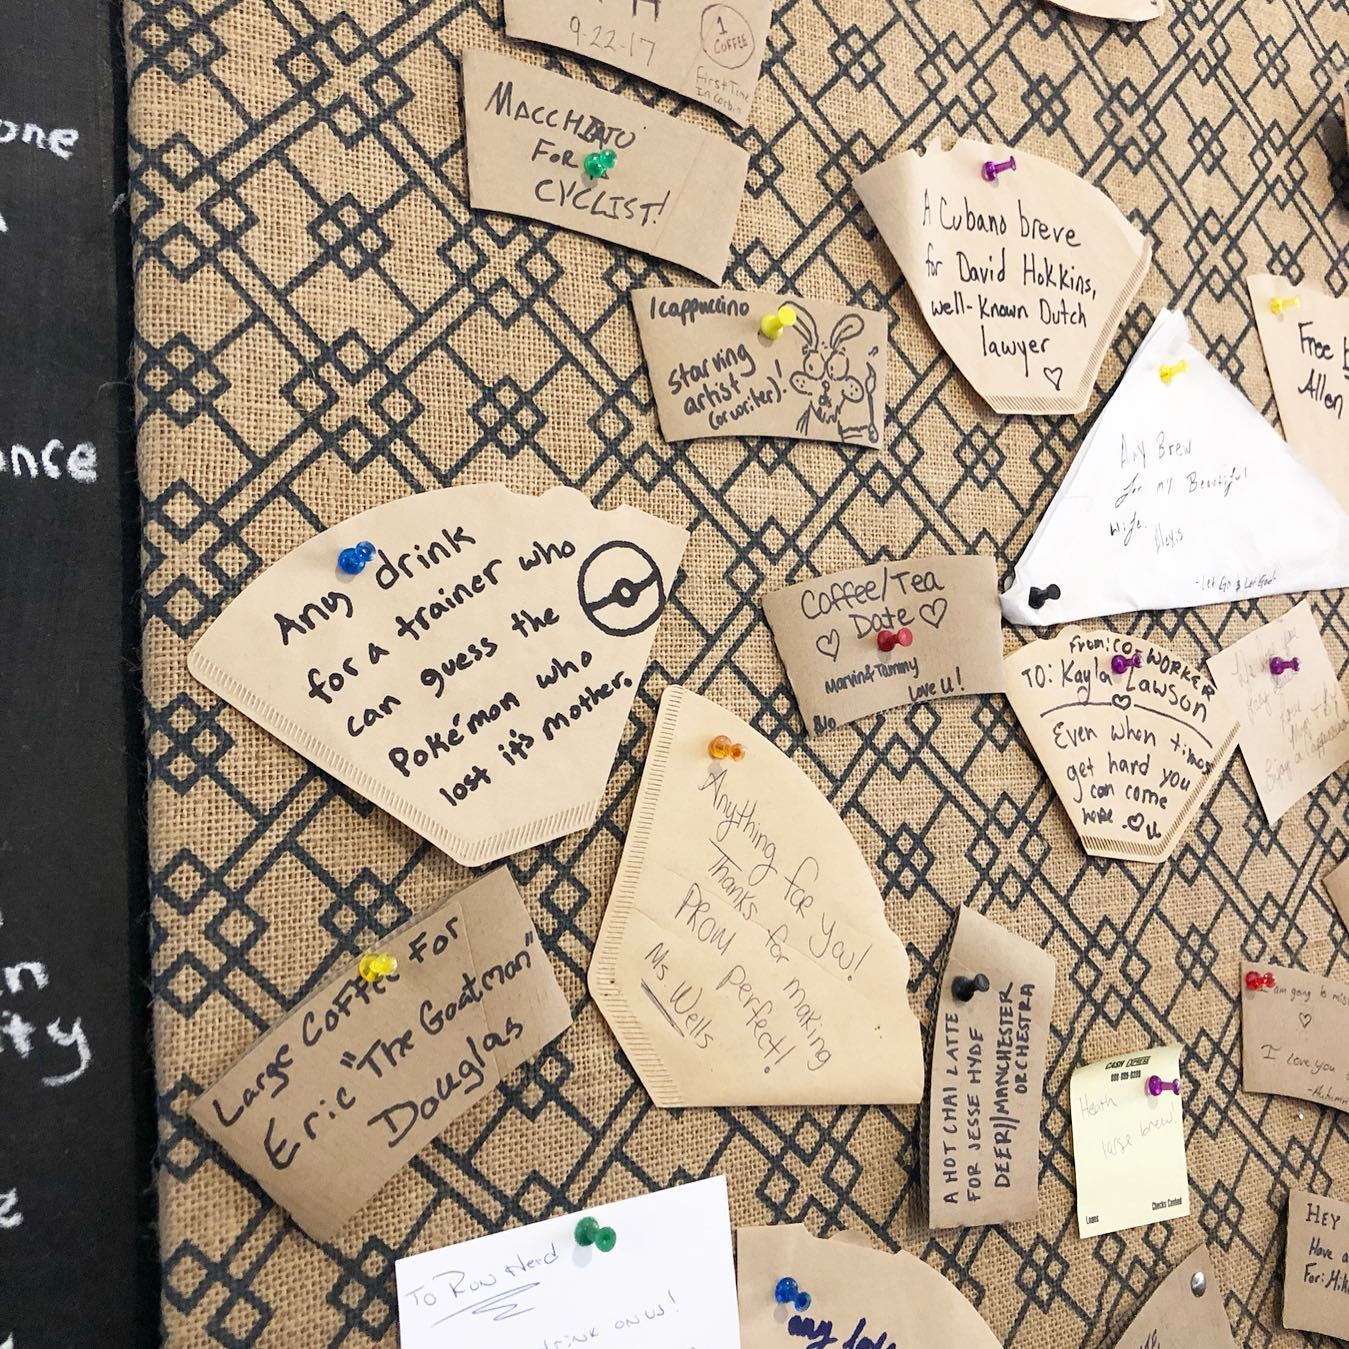 one
once
n
ty
9-22-17
1
COFFEE
First Time
In Corbin
MACCHIATO
FOR
CYCLIST!
A Cubano breve
for David Hokkins,
well-known Dutch
lawyer
1 cappuccino
starving
artist
(or writer)!
Free
Allen
Any Brew
for my Beautiful
wife.
Alexis
-Let Go & Let God-
Any drink
for a trainer who
can guess the
Pokémon who
lost it's mother.
Coffee/Tea
Date
Marvin & Tammy
Love u!
From: CO-WORKER
TO: Kayla Lawson
Even when times
get hard you
can come
here. U
Enjoy a Cappuccino
Anything for you!
Thanks for making
PROM perfect!
Ms. Wells
Large Coffee For
Eric "The Goatman"
Douglas
A HOT CHAI LATE
FOR JESSE HYDE
DEER//MANCHESTER
ORCHESTRA
CASH EXPRESS
Heath
large brew!
Loans
Checks Cashed
I am going to miss
I love you
-Autumn
To Run Nerd
drink on us!
any
HEY
Have a
For: Mik